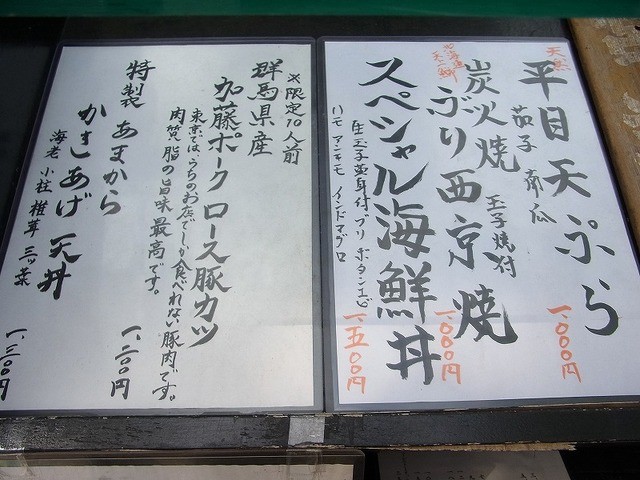 天然
平目天ぷら
茄子 南瓜
一、〇〇〇円
炭火焼
ぶり西京焼
玉子焼付
一、〇〇〇円
スペシャル海鮮丼
生玉子黄身付 ブリ ボタンエビ
ハモ アンキモ インドマグロ
一、五〇〇円
※限定10人前
群馬県産
加藤ポーク ロース豚カツ
東京では、うちのお店でしか食べれない豚肉です。
肉質、脂の旨味最高です。
一、二〇〇円
特製 あまから
かきあげ 天丼
海老 小柱 椎茸 三ッ葉
一、三〇〇円